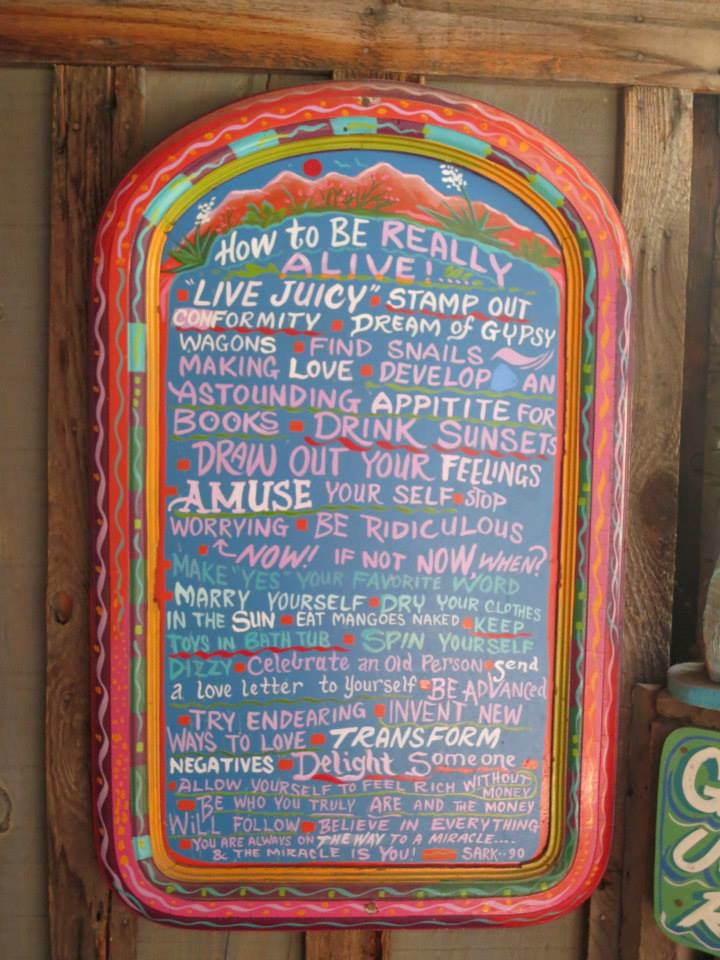 How to BE REALLY
ALIVE!.....
"LIVE JUICY" STAMP OUT
CONFORMITY DREAM of GYPSY
WAGONS FIND SNAILS
MAKING LOVE DEVELOP AN
ASTOUNDING APPITITE FOR
BOOKS DRINK SUNSETS
DRAW OUT YOUR FEELINGS
AMUSE YOUR SELF STOP
WORRYING BE RIDICULOUS
NOW! IF NOT NOW, WHEN?
MAKE "YES" YOUR FAVORITE WORD
MARRY YOURSELF DRY YOUR CLOTHES
IN THE SUN EAT MANGOES NAKED KEEP
TOYS IN BATH TUB SPIN YOURSELF
DIZZY Celebrate an Old Person send
a love letter to Yourself BE ADVANCED
TRY ENDEARING INVENT NEW
WAYS TO LOVE TRANSFORM
NEGATIVES Delight Someone
ALLOW YOURSELF TO FEEL RICH WITHOUT
MONEY
BE WHO YOU TRULY ARE AND THE MONEY
WILL FOLLOW BELIEVE IN EVERYTHING
YOU ARE ALWAYS ON THE WAY TO A MIRACLE....
& THE MIRACLE IS YOU! SARK··90
G
U
R